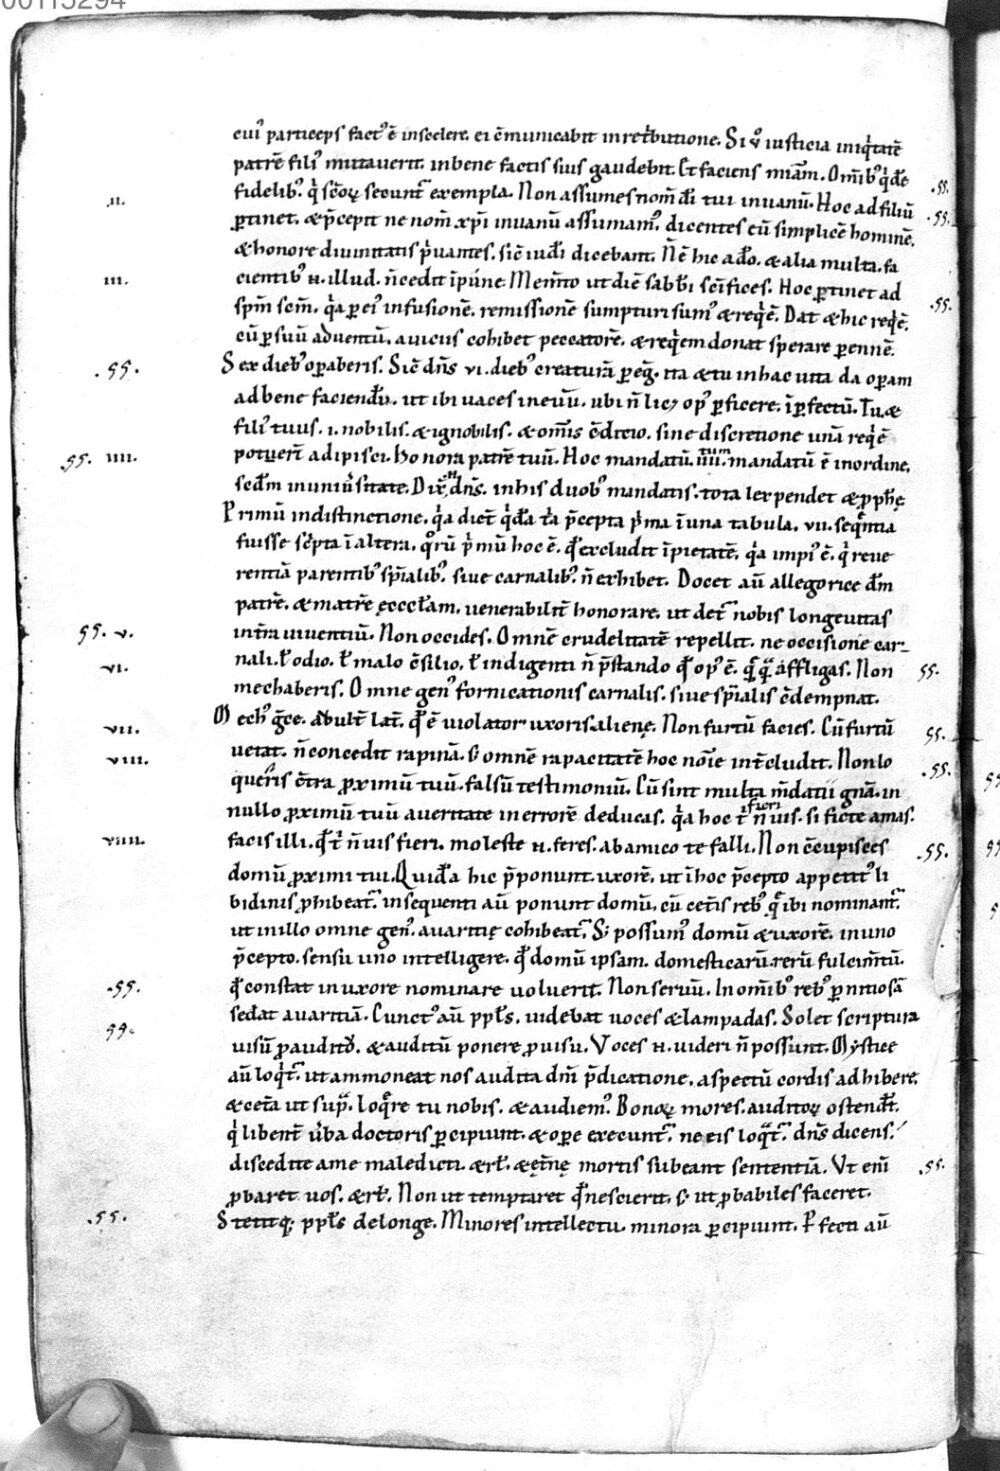 00115294
cuiꝰ particeps factꝰ ē inscelere. ei cōmunicabit inret̄butione. Si v̊ iusticia iniq̇tatē
patrē filiꝰ mutauerit. inbene factis suis gaudebit. Et faciens miām. Om̄ibꝰ q̇dē .ss.
.ii. fidelibꝰ. q̇ sc̄oꝝ secunt̄ exempla. Non assumes nom̄ dī tui inuanū. Hoc ad filiū .ss.
ꝑtinet. & p̄cepit ne nom̄ xp̄i inuanū assumamꝰ. dicentes eū simplicē hominē.
& honore diuinitatis p̄uantes. sic̄ iud̄i dicebant. Nc̄ hic ad̄o. & alia multa. fa
.iii. cientibꝰ n̄. illud. n̄cedit īpune. Mem̄to ut diē sabb̄i sc̄ifices. Hoc ꝑtinet ad .ss.
sp̄m sc̄m. q̇a ꝑ eiꝰ infusionē. remissionē sumpturi sumꝰ & req̇ē. Dat & hic req̇ē.
cū ꝑ suū aduentū. a uiciis cohibet peccatorē. & req̇em donat sperare ꝑennē.
.ss. Sex diebꝰ oꝑaberis. Sic̄ dn̄s vi. diebꝰ creaturā ꝑeḡ. ita & tu inhac uita da oꝑam
ad bene faciend̄u. ut ibi uaces ineuū. ubi n̄ licꝫ opꝰ ꝑficere. īꝑfectū. Tu &
filiꝰ tuus. i. nobilis. & ignobilis. & om̄is c̄dicio. sine discretione unā req̇ē
.ss. iiii. potuer̄t adipisci. Honora patrē tuū. Hoc mandatū. iiii.tum mandatū ē inordine.
sed̄m in uniūsitate. Dix̄ n̄ dn̄s. inhis duobꝰ mandatis. tota lex pendet & ꝓph̄ę
Primū indistinctione. q̇a dic̄t q̇d̄a t̄a p̄cepta p̄ma ī una tabula. vii. seq̄ntia
fuisse sc̄pta ī altera. q̊rū p̄mū hoc ē. q̄ excludit īpietatē. q̇a impiꝰ ē. q̇ reue
rentiā parentibꝰ sp̄ialibꝰ. siue carnalibꝰ. n̄ exhibet. Docet aū allegorice d̄m
patrē. & matrē ęccl̄am. uenerabilit̄ honorare. ut det̄ nobis longeuitas
.ss. v. int̄ra uiuentiū. Non occides. Omnē crudelitatē repellit. ne occisione car-
.vi. nali. ł odio. ł malo c̄silio. ł indigenti n̄ p̄stando q̄ opꝰ ē. q̄q̄ affligas. Non .ss.
mechaberis. Omne genꝰ fornicationis carnalis. siue sp̄ialis c̄dempnat.
.vii. Mechꝰ ḡce. adult̄ lat̄. q̄ ē uiolator uxoris alienę. Non furtū facies. Cū furtū .ss.
.viii. uetat. n̄ concedit rapinā. s; omnē rapacitatē hoc noīe int̄cludit. Non lo .ss.
queris c̄tra ꝓximū tuū. falsū testimoniū. Cū sint multa m̄data gnā. in
nullo ꝓximū tuū a ueritate in errorē deducas. q̇a hoc t̄ n̄ uis fieri. si ficte amas.
.viiii. facis illi. q̄ t̄ n̄ uis fieri. moleste n̄. feres. ab amico te falli. Non c̄cupisces .ss.
domū ꝓximi tui. Quid̄a hic p̄ponunt. uxorē. ut ī hoc p̄cepto appetitꝰ li
bidinis ꝓhibeat̄. in sequenti aū ponunt domū. cū cet̄is rebꝰ q̄ ibi nominant̄.
ut in illo omne genꝰ. auaritię cohibeat̄. S; possumꝰ domū & uxorē. in uno
p̄cepto. sensu uno intelligere. q̄ domū ipsam. domesticarū. rerū fulcim̄tū.
.ss. q̄ constat in uxore nominare uoluerit. Non seruū. In om̄ibꝰ rebꝰ ꝑnitiosā
.ss. sed̄at auaritiā. Cunctꝰ aū ppl̄s. uidebat uoces & lampadas. Solet scriptura
uisū ꝓ auditu. & auditū ponere ꝓ uisu. Voces n̄. uideri n̄ possunt. Mystice
aū loq̇t̄. ut ammoneat nos audita dn̄i p̄dicatione. aspectū cordis ad hibere.
& cet̄a ut sup̄. loq̄re tu nobis. & audiemꝰ. Bonoꝝ mores. auditoꝝ ostend̄t.
q̇ libent̄ ūba doctoris ꝑcipiunt. & oꝑe execunt̄. ne eis loq̄t̄. dn̄s dicens.
discedite a me maledicti. & rł. & ęt̄nę mortis subeant sententiā. Vt eni .ss.
ꝓbaret uos. & rł. Non ut temptaret q̄ nescierit. s; ut ꝓbabiles faceret.
.ss. Stetitq; ppl̄s de longe. Minores intellectu. minora ꝑcipiunt. Pfecti aū